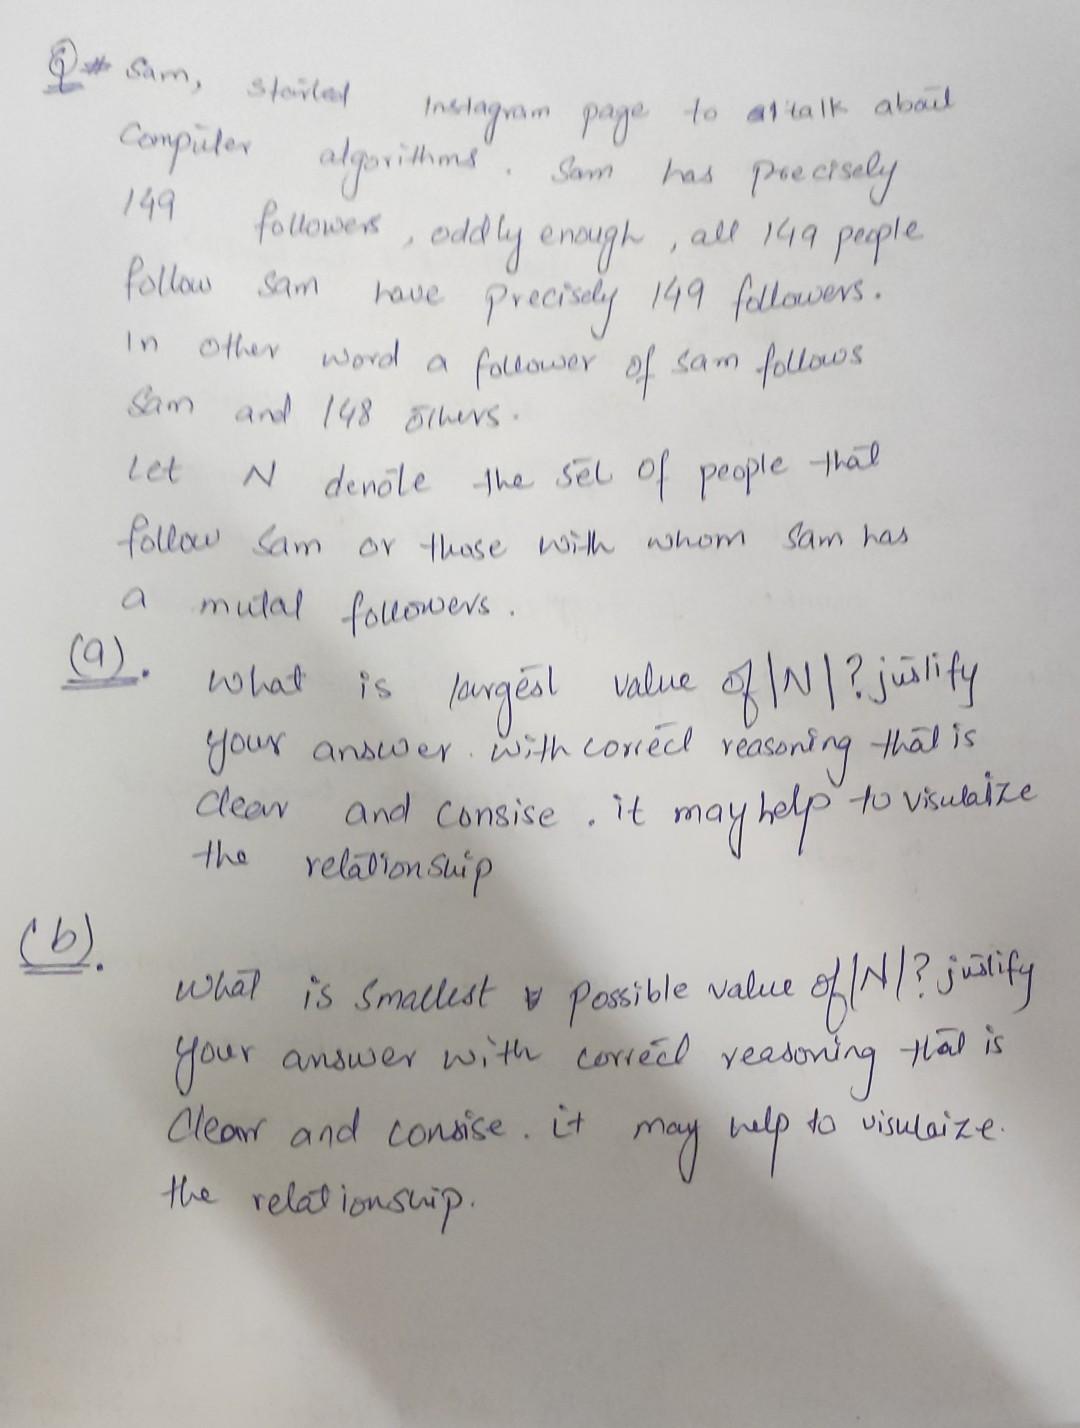 Q# Sam, started Instagram page to talk about
Computer algorithms. Sam has precisely
149 followers, oddly enough, all 149 people
follow Sam have precisely 149 followers.
In other word a follower of Sam follows
Sam and 148 others.
Let N denote the set of people that
follow Sam or those with whom Sam has
a mutal followers.
(a). What is largest value of |N|? justify
your answer. with correct reasoning that is
clear and consise. it may help to visulaize
the relationship
(b).
What is smallest possible value of |N|? justify
your answer with correct reasoning that is
Clear and consise. it may help to visulaize.
the relationship.